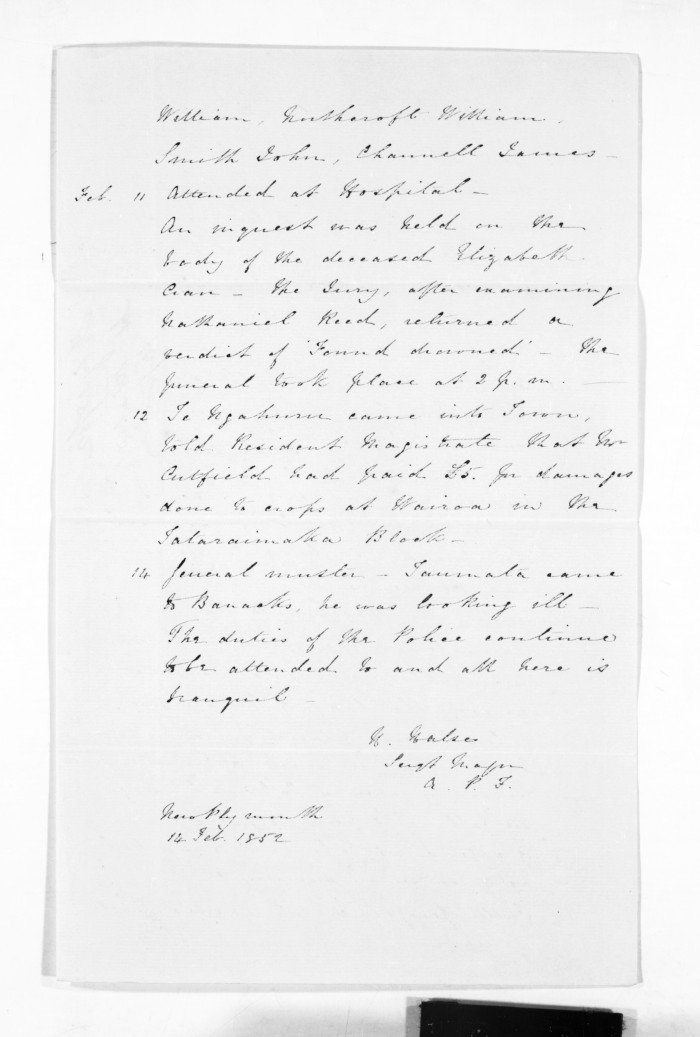 William, Northcroft William,
Smith John, Channell James –
Feb. 11 Attended at Hospital –
An inquest was held on the
body of the deceased Elizabeth
– The Jury, after examining
Nathaniel Reed, returned a
verdict of 'Found drowned' – The
funeral took place at 2 p.m. –
12 Te Ngahuru came into Town,
told Resident Magistrate that Mr
Cutfield had paid £5. for damages
done to crops at Wairoa in the
Tataraimaka Block –
14 General muster – Taumata came
to Baracks, he was looking ill –
The duties of the Police continue
to be attended to and all here is
tranquil –
H. Halse
Sergt Major
A. P. F.
New Plymouth
14 Feb. 1852